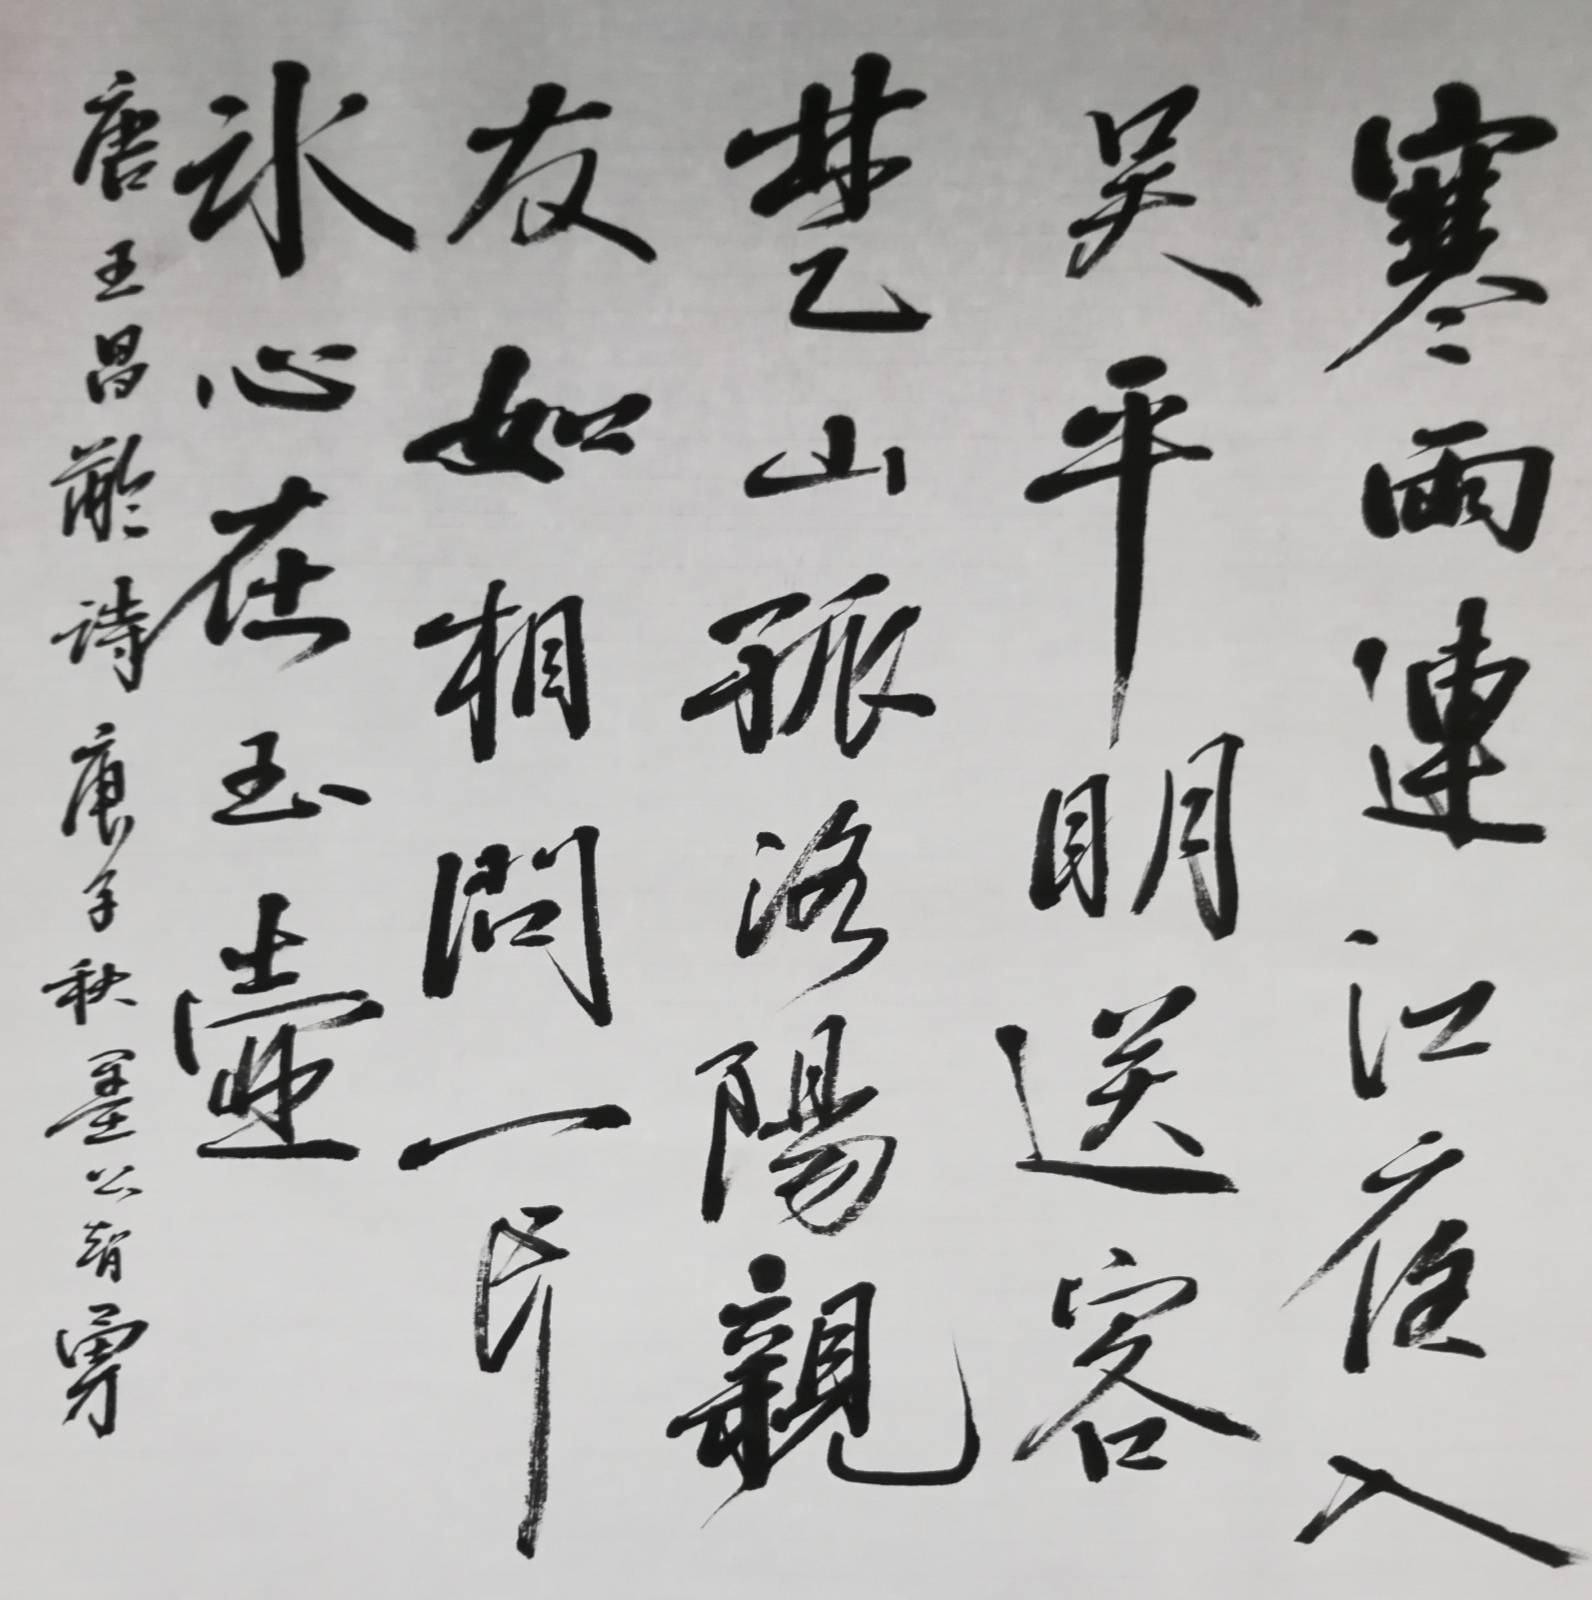 寒雨連江夜入
吴平明送客
楚山孤洛陽親
友如相問一片
冰心在玉壺
唐王昌齡詩庚子秋墨公智勇